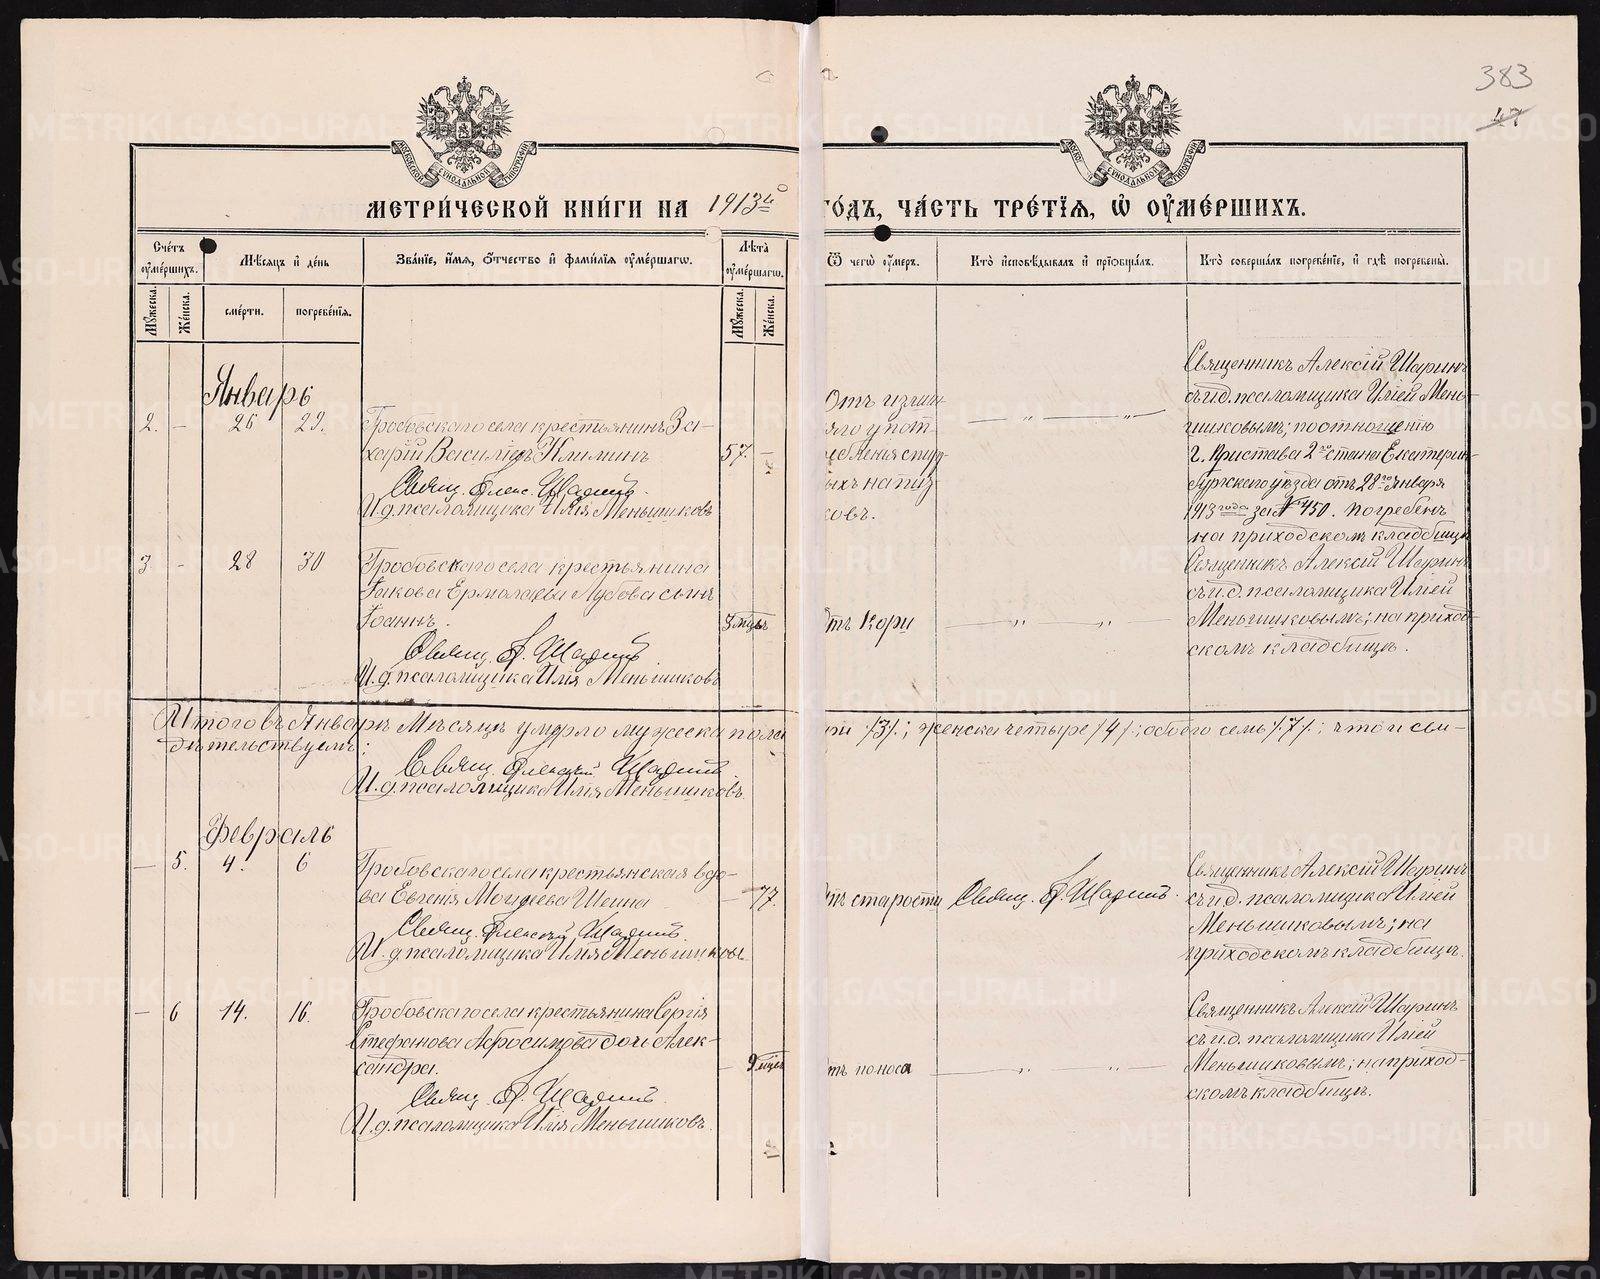 383
47
МЕТРИ́ЧЕСКОЙ КНИ́ГИ НА 1913й
ГО́ДЪ, ЧА́СТЬ ТРЕ́ТІЯ, Ѽ ОУМЕ́РШИХЪ.
Сче́тъ оуме́ршихъ.
Мѣ́сяцъ и҆ де́нь
Зва́ніе, и҆́мя, ѻ҆́тчество и҆ фами́лія оуме́ршагѡ.
Лѣ́та оуме́ршагѡ.
Ѿ чегѡ̀ оу́меръ.
Кто̀ и҆сповѣ́дывалъ и҆ прїѡбща́лъ.
Кто̀ соверша́лъ погребе́ніе, и҆ гдѣ̀ погребены̀.
Му́жеска.
Же́нска.
сме́рти.
погребе́нія.
Му́жеска.
Же́нска.
Январь
2. - 26 29.
Гробовского села крестьянинъ За-
харій Василіевъ Климинъ
57. -
Свящ. Алекс. Шаринъ.
И.д. псаломщика Илія Меньшиковъ
Отъ излиш
яго упот
ебленія спирт
ыхъ напит
ковъ.
— „ — „ —
Священникъ Алексій Шаринъ
съ и.д. псаломщика Иліей Мень-
шиковымъ; по отношенію
г. Пристава 2го стана Екатерин-
бургскаго уѣзда отъ 28го января
1913 года за № 450. погребенъ
на приходскомъ кладбищѣ
3. - 28 30
Гробовского села крестьянина
Іакова Ермолаева Лубова сынъ
Іоаннъ.
3 мцъ
Свящ. А. Шаринъ
И.д. псаломщика Илія Меньшиковъ
отъ Кори
— „ — „ —
Священникъ Алексій Шаринъ
съ и.д. псаломщика Иліей
Меньшиковымъ; на приход-
скомъ кладбищѣ.
Итого въ Январѣ Мѣсяцѣ умерло мужеска пола
три /3/; женска четыре /4/; обоего семь /7/; что и сви-
дѣтельствуемъ:
Свящ. Алексій Шаринъ.
И.д. псаломщика Илія Меньшиковъ.
Февраль
— 5. 4. 6
Гробовского села крестьянская вдо-
ва Евгенія Шеина
— 77.
Свящ. Алексій Шаринъ.
И.д. псаломщика Илія Меньшиковъ
отъ старости
Свящ. А. Шаринъ.
Священникъ Алексій Шаринъ
съ и.д. псаломщика Иліей
Меньшиковымъ; на
приходскомъ кладбищѣ.
— 6 14. 16.
Гробовского села крестьянина Сергія
Стефанова Абросимова дочь Алек-
сандра.
— 9 мцев
Свящ. А. Шаринъ.
И.д. псаломщика Илія Меньшиковъ.
отъ поноса
— „ — „ —
Священникъ Алексій Шаринъ
съ и.д. псаломщика Иліей
Меньшиковымъ; на приход-
скомъ кладбищѣ.
METRIKI.GASO-URAL.RU